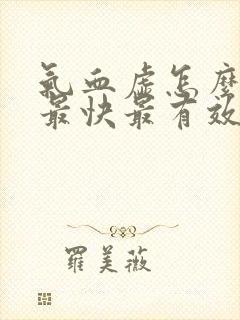 氣血虛怎麼
最快最有效
羅美薇